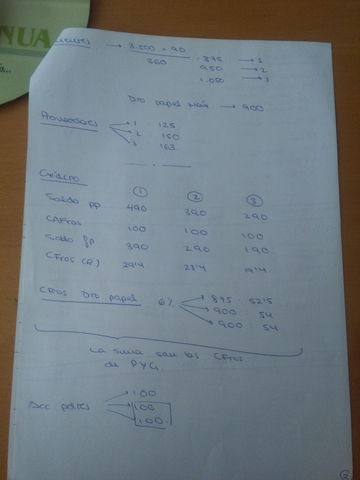 NUA
Clientes → 3.500 × 90 / 360 . 875 → 1
950 → 2
1.000 → 3
Dto papel máx. → 900
Proveedores → 1 125
→ 2 150
→ 3 163
Crédito
① ② ③
Saldo pp 490 390 290
CAFros 100 100 100
Saldo fp 390 290 190
CFros (6) 29'4 23'4 17'4
CFros Dto papel . 6% → 875 . 52'5
→ 900 . 54
→ 900 . 54
La suma son los CFros
de PyG.
→ 100
→ 100
→ 100
2